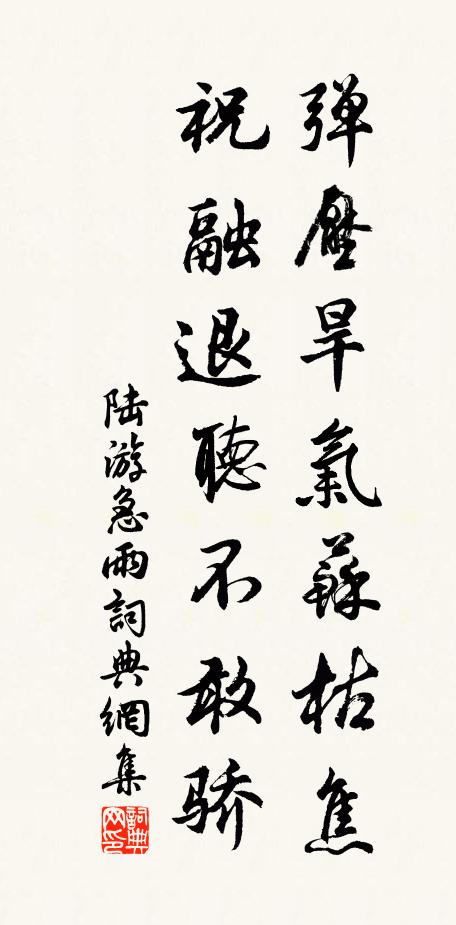 弹壓旱氣蘇枯焦
祝融退聽不敢骄
陆游急雨詞典網集
詞典网印